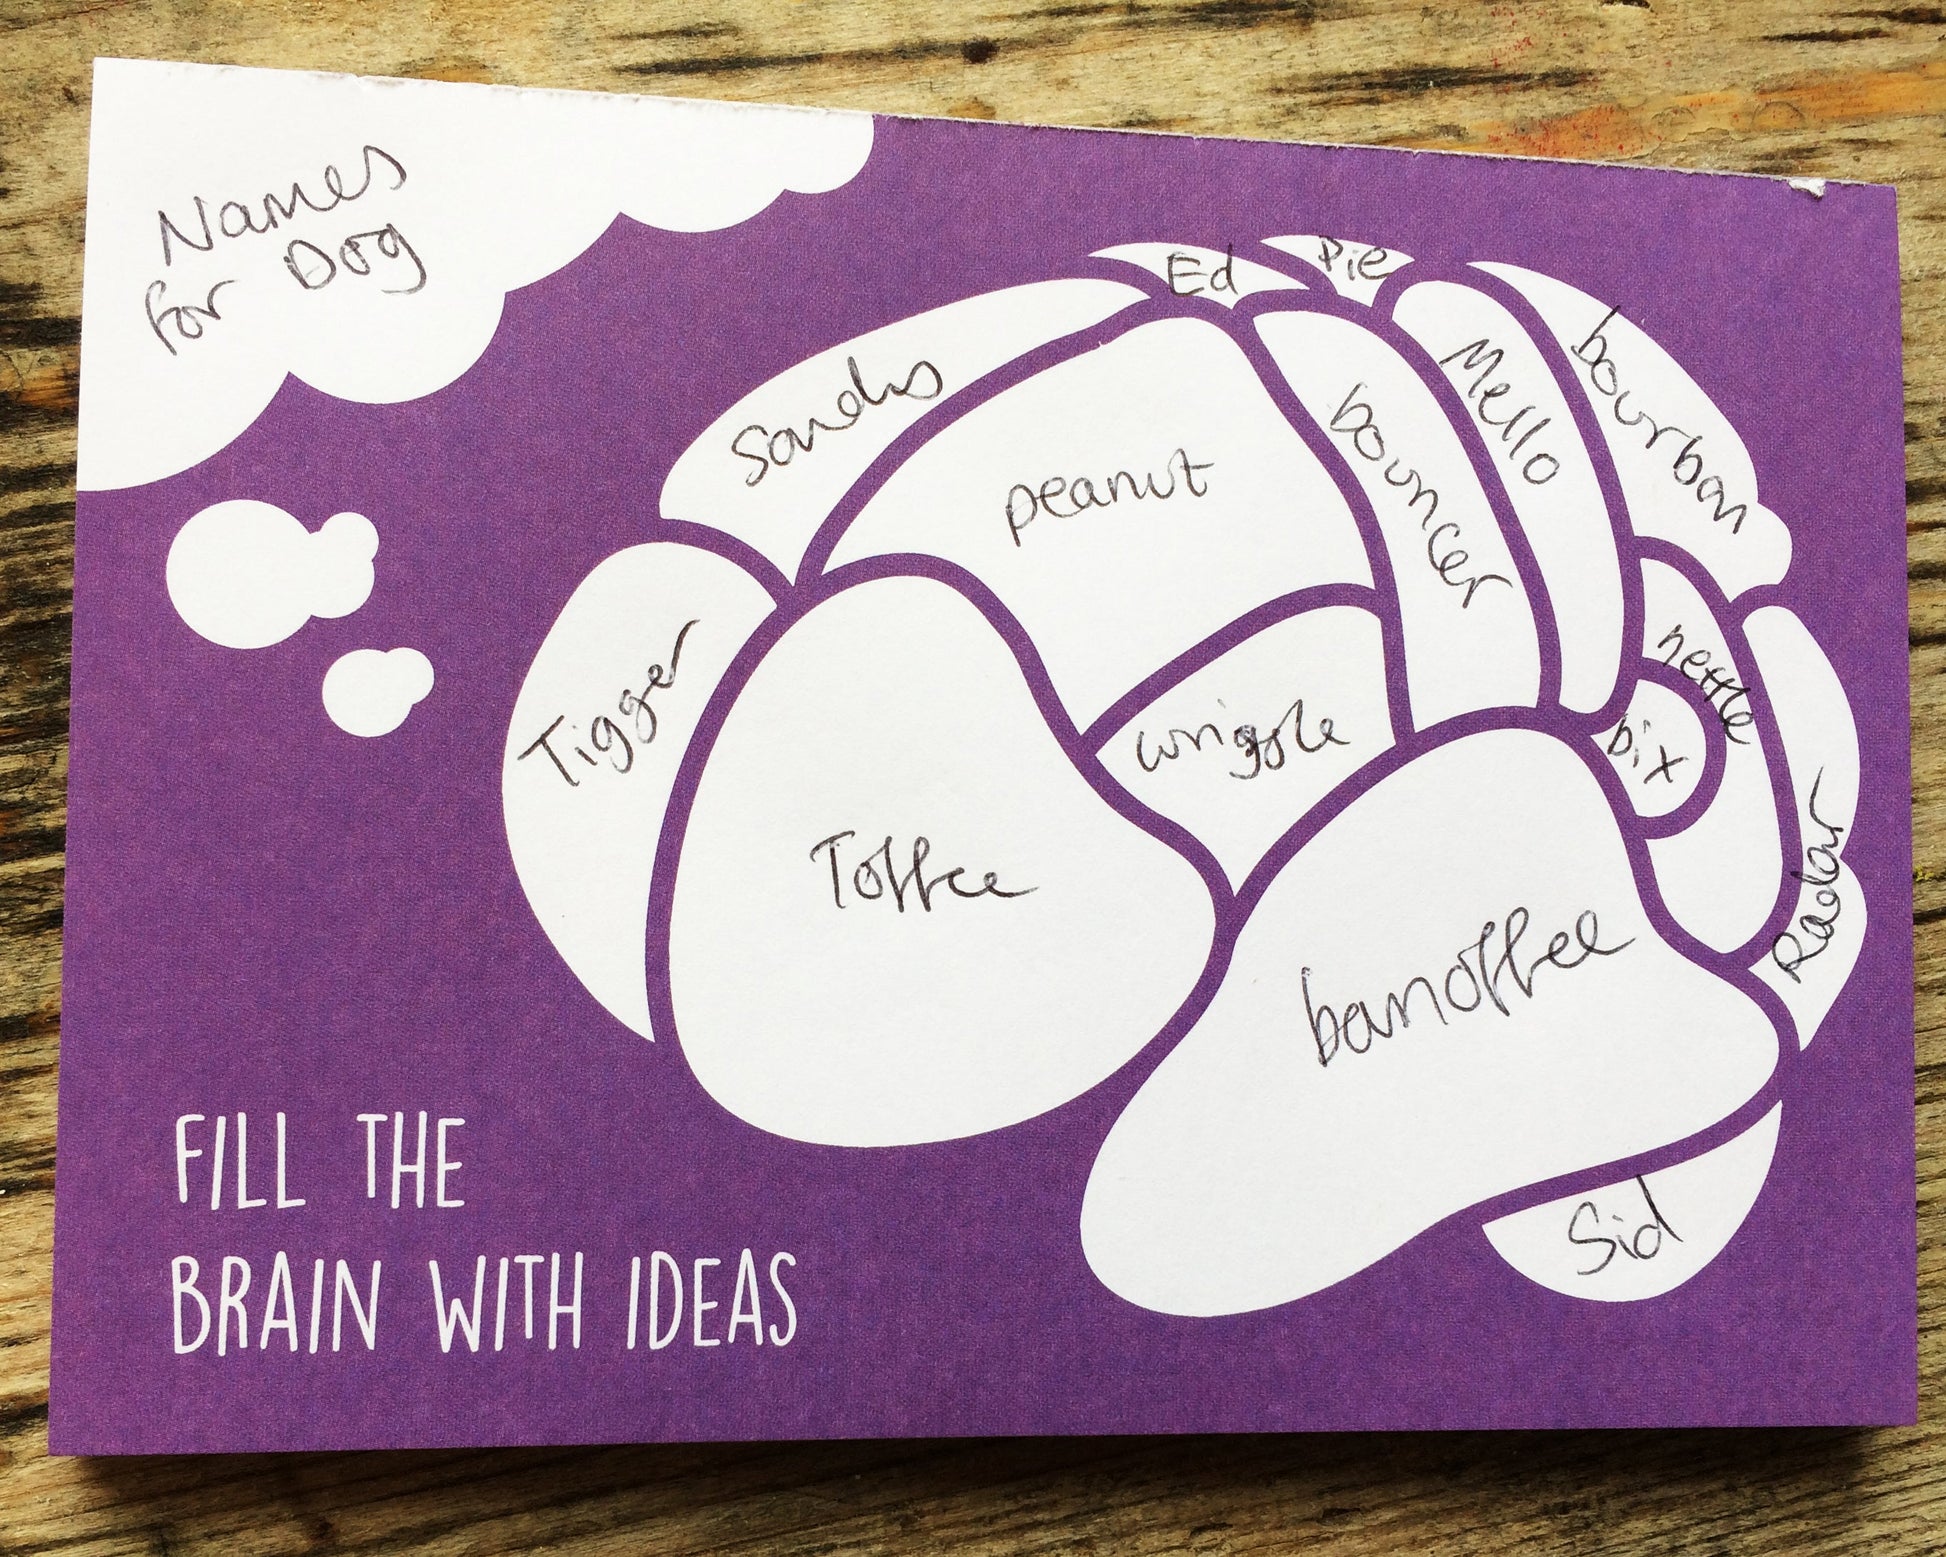 Names
for Dog
Ed
Pie
Sandis
peanut
bouncer
Mello
bourban
Tigger
wriggle
nettle
bix
Toffee
banoffee
Radar
Sid
FILL THE
BRAIN WITH IDEAS